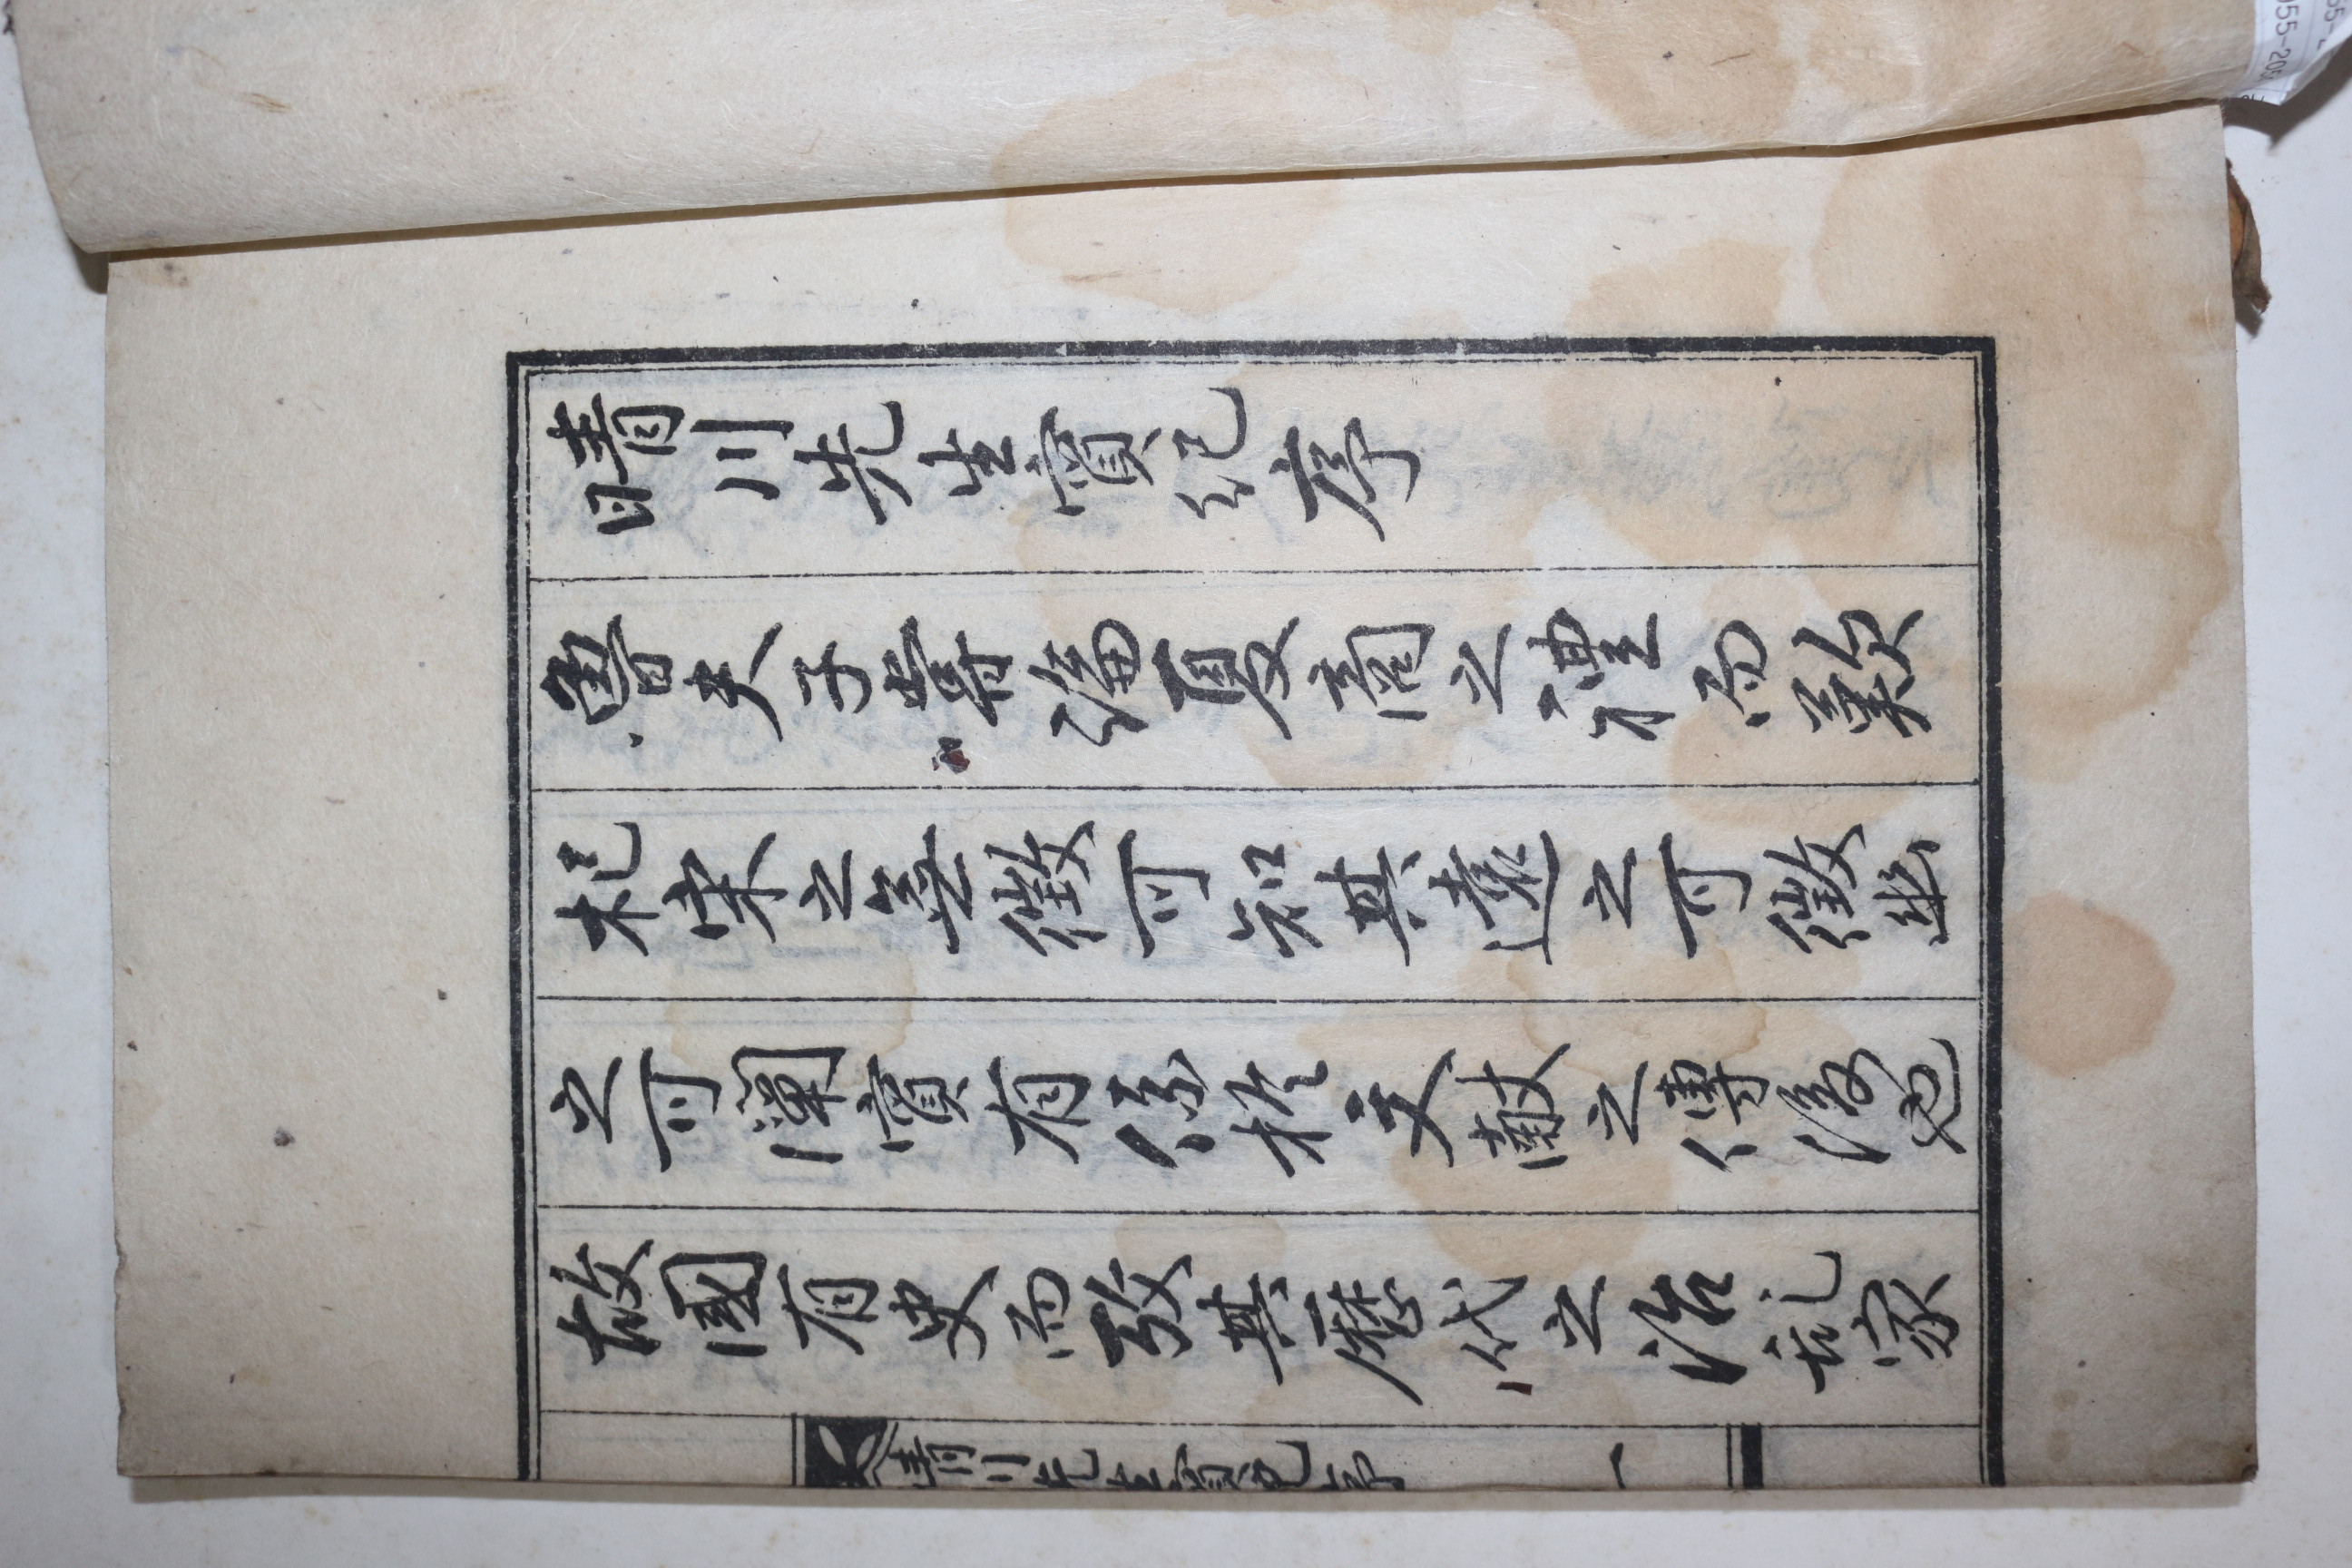 晴川先生實紀序
魯夫子嘗論夏商之禮而歎
杞宋之無徵可知其遠之可徵幽
之可闡實有係於文獻之傳後也
故國有史而攷其歷代之治乱家
晴川先生實紀序
一